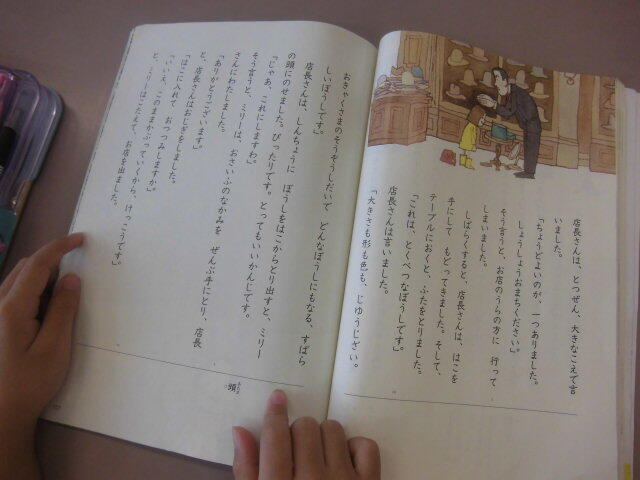 店長さんは、とつぜん、大きなこえで言
いました。
「ちょうどよいのが、一つありました。
しょうしょうおまちください。」
そう言うと、お店のうらの方に　行って
しまいました。
しばらくすると、店長さんは、はこを
手にして　もどってきました。そして、
テーブルにおくと、ふたをとりました。
「これは、とくべつなぼうしです。」
店長さんは言いました。
「大きさも形も色も、じゆうじざい。
おきゃくさまのそうぞうしだいで　どんなぼうしにもなる、すばら
しいぼうしです。」
店長さんは、しんちょうに　ぼうしをはこからとり出すと、ミリー
の頭にのせました。ぴったりです。とってもいいかんじです。
「じゃあ、これにしますわ。」
そう言うと、ミリーは、おさいふのなかみを　ぜんぶ手にとり、店長
さんにわたしました。
「ありがとうございます。」
と、店長さんはおじぎをしました。
「はこに入れて　おつつみしますか。」
「いいえ、このままかぶっていくから、けっこうです。」
と、ミリーはこたえて、お店を出ました。
頭
あたま